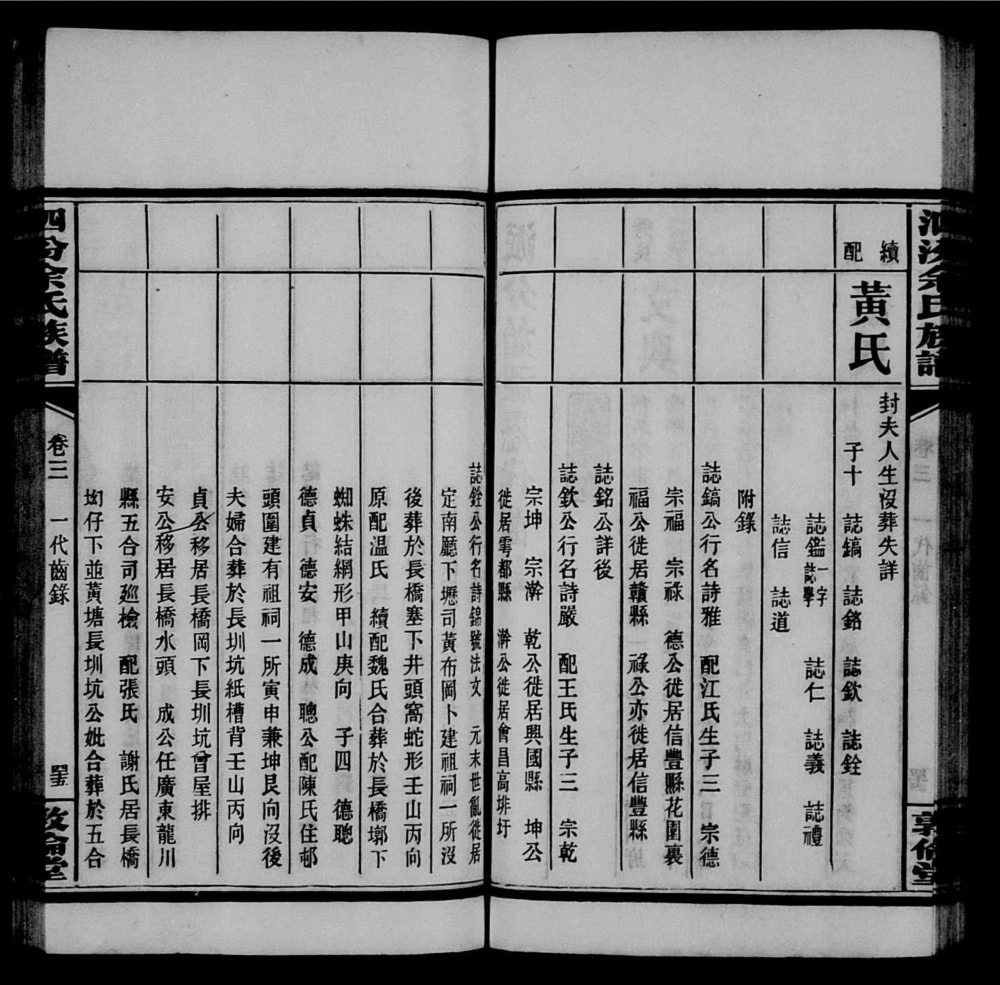 余氏族譜
卷三
一代齒錄
敦倫堂
續配
黃氏
封夫人生沒葬失詳
子十 誌鎬 誌銘 誌欽 誌銓
誌鑑一字誌學 誌仁 誌義 誌禮
誌信 誌道
附錄
誌鎬公行名詩雅 配江氏生子三 宗德
宗福 宗祿 德公徙居信豐縣花園裏
福公徙居贛縣 祿公亦徙居信豐縣
誌銘公詳後
誌欽公行名詩嚴 配王氏生子三 宗乾
宗坤 宗澣 乾公徙居興國縣 坤公
徙居雩都縣 澣公徙居會昌高排圩
誌銓公行名詩錦號法文 元末世亂徙居
定南廳下壢司黃布岡卜建祖祠一所沒
後葬於長橋塞下井頭窩蛇形壬山丙向
原配温氏 續配魏氏合葬於長橋墩下
蜘蛛結網形甲山庚向 子四 德聰
德貞 德安 德成 聰公配陳氏住邨
頭圍建有祖祠一所寅申兼坤艮向沒後
夫婦合葬於長圳坑紙槽背壬山丙向
貞公移居長橋岡下長圳坑曾屋排
安公移居長橋水頭 成公任廣東龍川
縣五合司廵檢 配張氏 謝氏居長橋
坳仔下並黃塘長圳坑公妣合葬於五合
余氏族譜
卷三
一代齒錄
敦倫堂